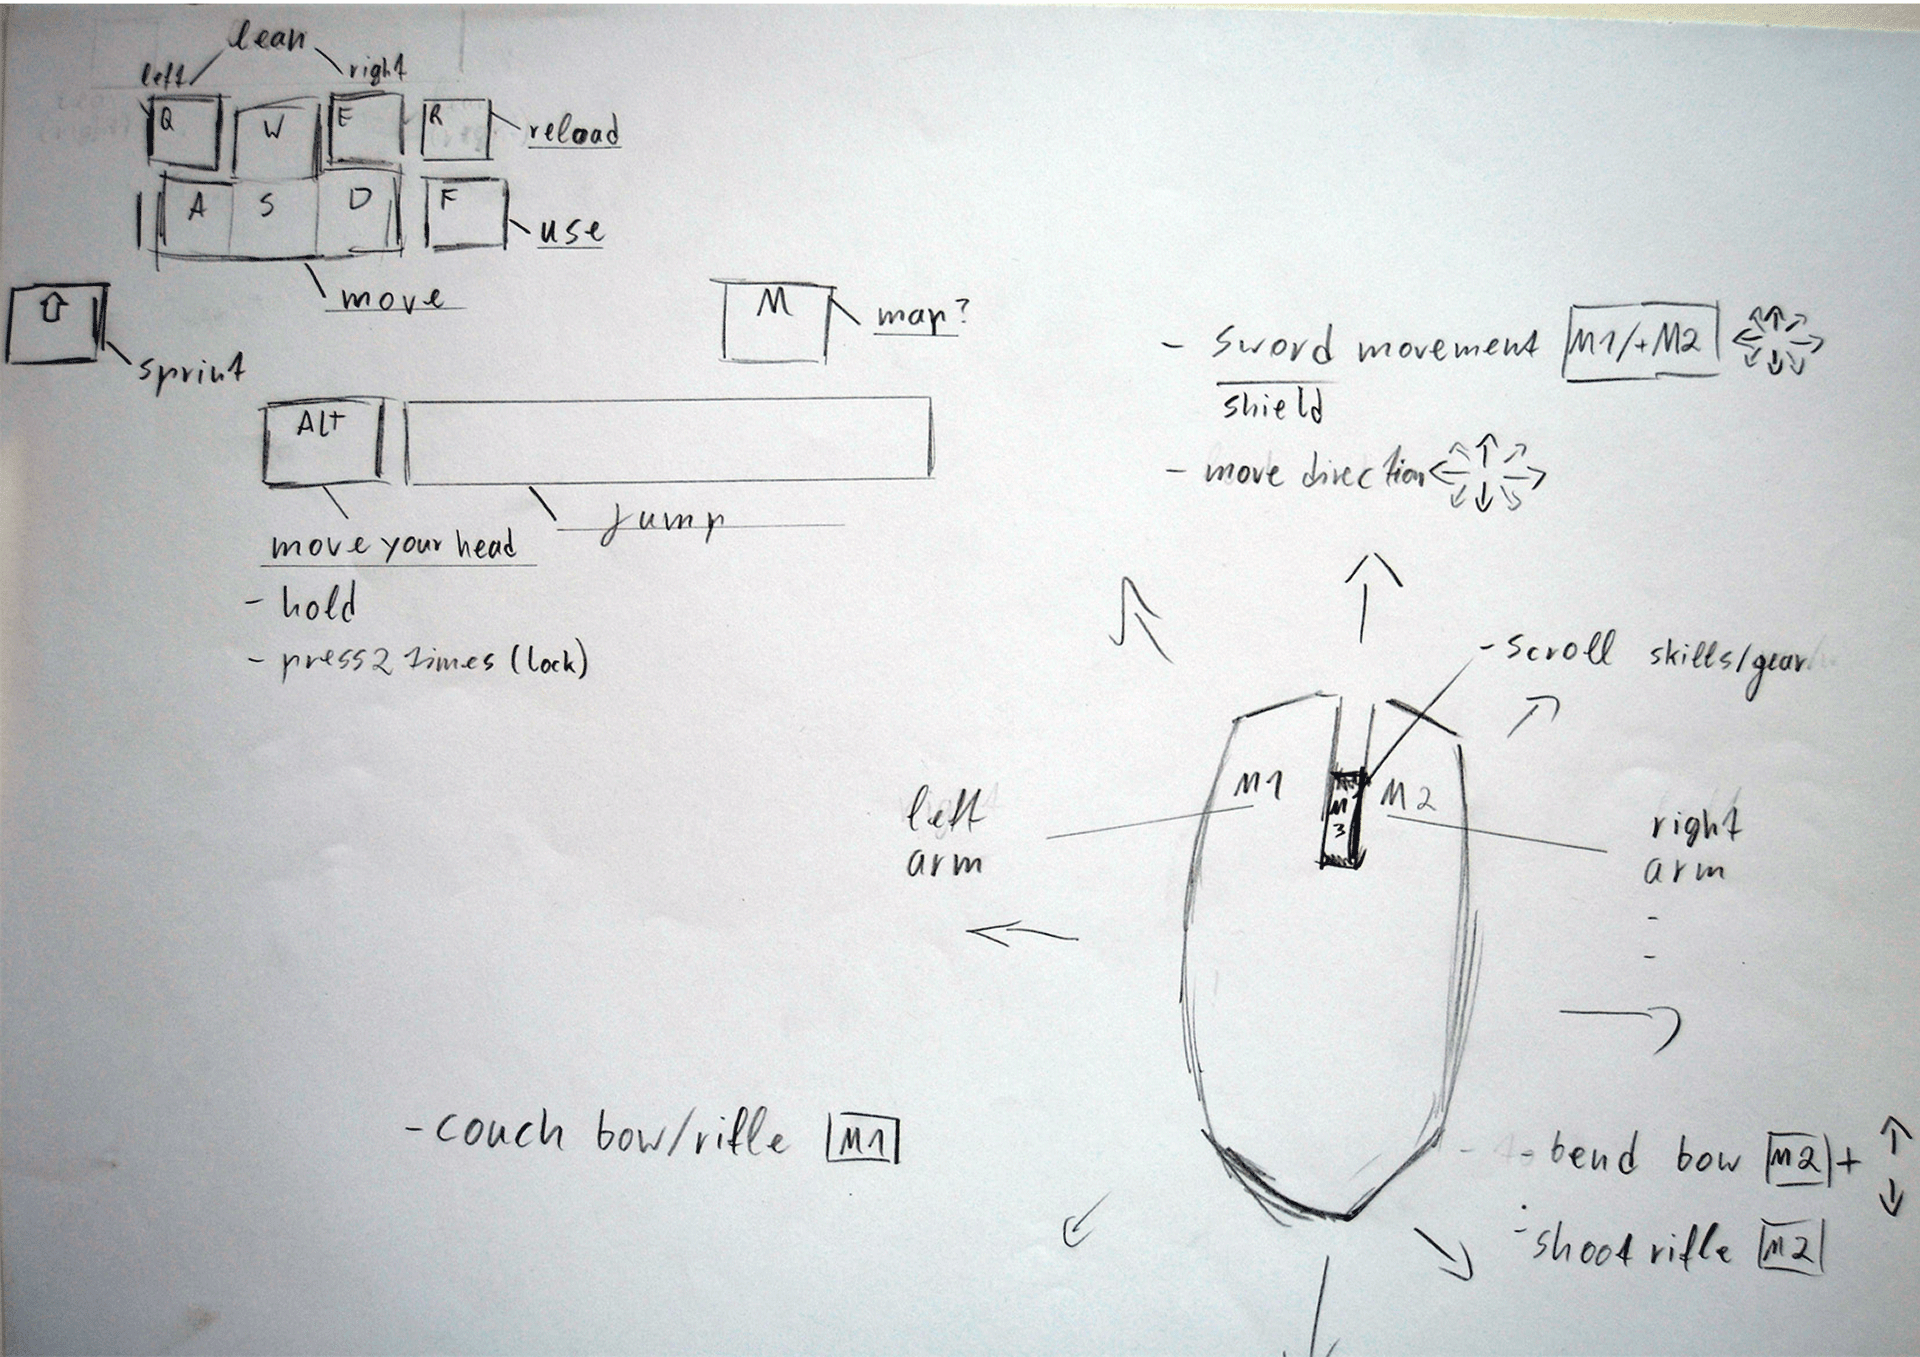 lean
left right
Q W E R reload
A S D F use
move
⇧ sprint
M map?
ALt
jump
move your head
- hold
- press 2 times (lock)
- sword movement M1/+M2
shield
- move direction
- scroll skills/gear
M1 M3 M2
left arm
right arm
-
-
- couch bow/rifle M1
- bend bow M2 +
- shoot rifle M2